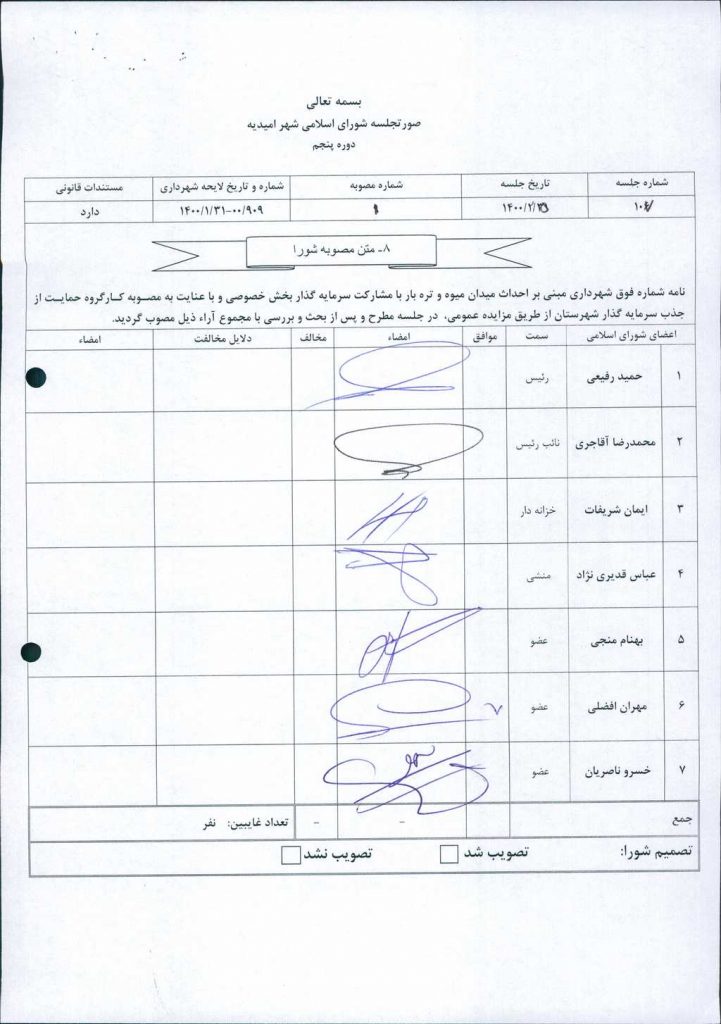 بسمه تعالی
صورتجلسه شورای اسلامی شهر امیدیه
دوره پنجم
شماره جلسه تاریخ جلسه شماره مصوبه شماره و تاریخ لایحه شهرداری مستندات قانونی
۱ ۱۴۰۰/۱/۳۱-۰۰/۹۰۹ دارد
۸ـ متن مصوبه شورا
نامه شماره فوق شهرداری مبنی بر احداث میدان میوه و تره بار با مشارکت سرمایه گذار بخش خصوصی و با عنایت به مصوبه کارگروه حمایت از
جذب سرمایه گذار شهرستان از طریق مزایده عمومی، در جلسه مطرح و پس از بحث و بررسی با مجموع آراء ذیل مصوب گردید.
اعضای شورای اسلامی سمت موافق امضاء مخالف دلایل مخالفت امضاء
۱ حمید رفیعی رئیس
۲ محمدرضا آقاجری نائب رئیس
۳ ایمان شریفات خزانه دار
۴ عباس قدیری نژاد منشی
۵ بهنام منجی عضو
۶ مهران افضلی عضو
۷ خسرو ناصریان عضو
جمع - - تعداد غایبین: نفر
تصمیم شورا: تصویب شد تصویب نشد